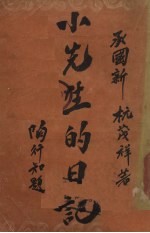 承國新 杭茂祥著
小先生的日記
陶行知題